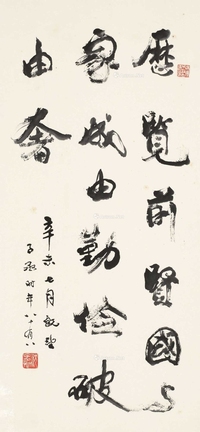 歷覽前賢國与
家成由勤儉破
由奢
辛未七月既望
時年八十有八